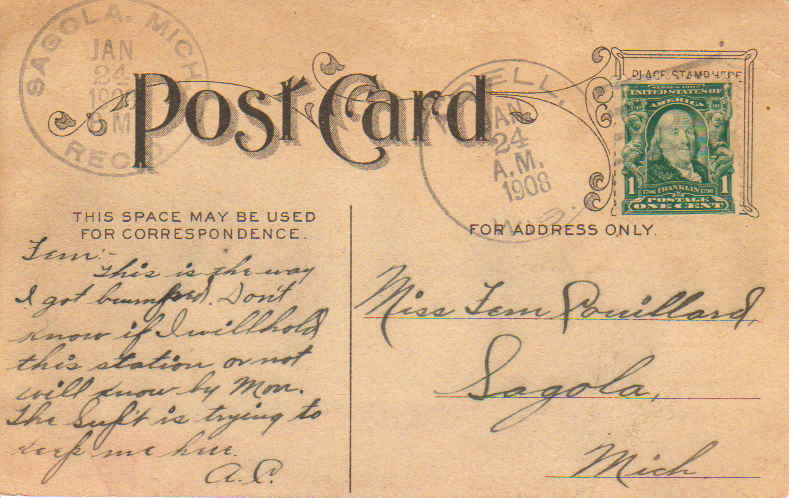 SAGOLA, MICH.
JAN
24
190
M
REC'D
Post Card
ELL,
JAN
24
A.M.
1908
WIS.
PLACE STAMP HERE
UNITED STATES OF
AMERICA
1 FRANKLIN 1
POSTAGE
ONE CENT
THIS SPACE MAY BE USED
FOR CORRESPONDENCE.
FOR ADDRESS ONLY.
Fern:-
This is the way
I got bumped. Don't
know if I will hold
this station or not
will know by Mon.
The Sup't is trying to
keep me here.
A.C.
Miss Fern Rouillard,
Sagola,
Mich.